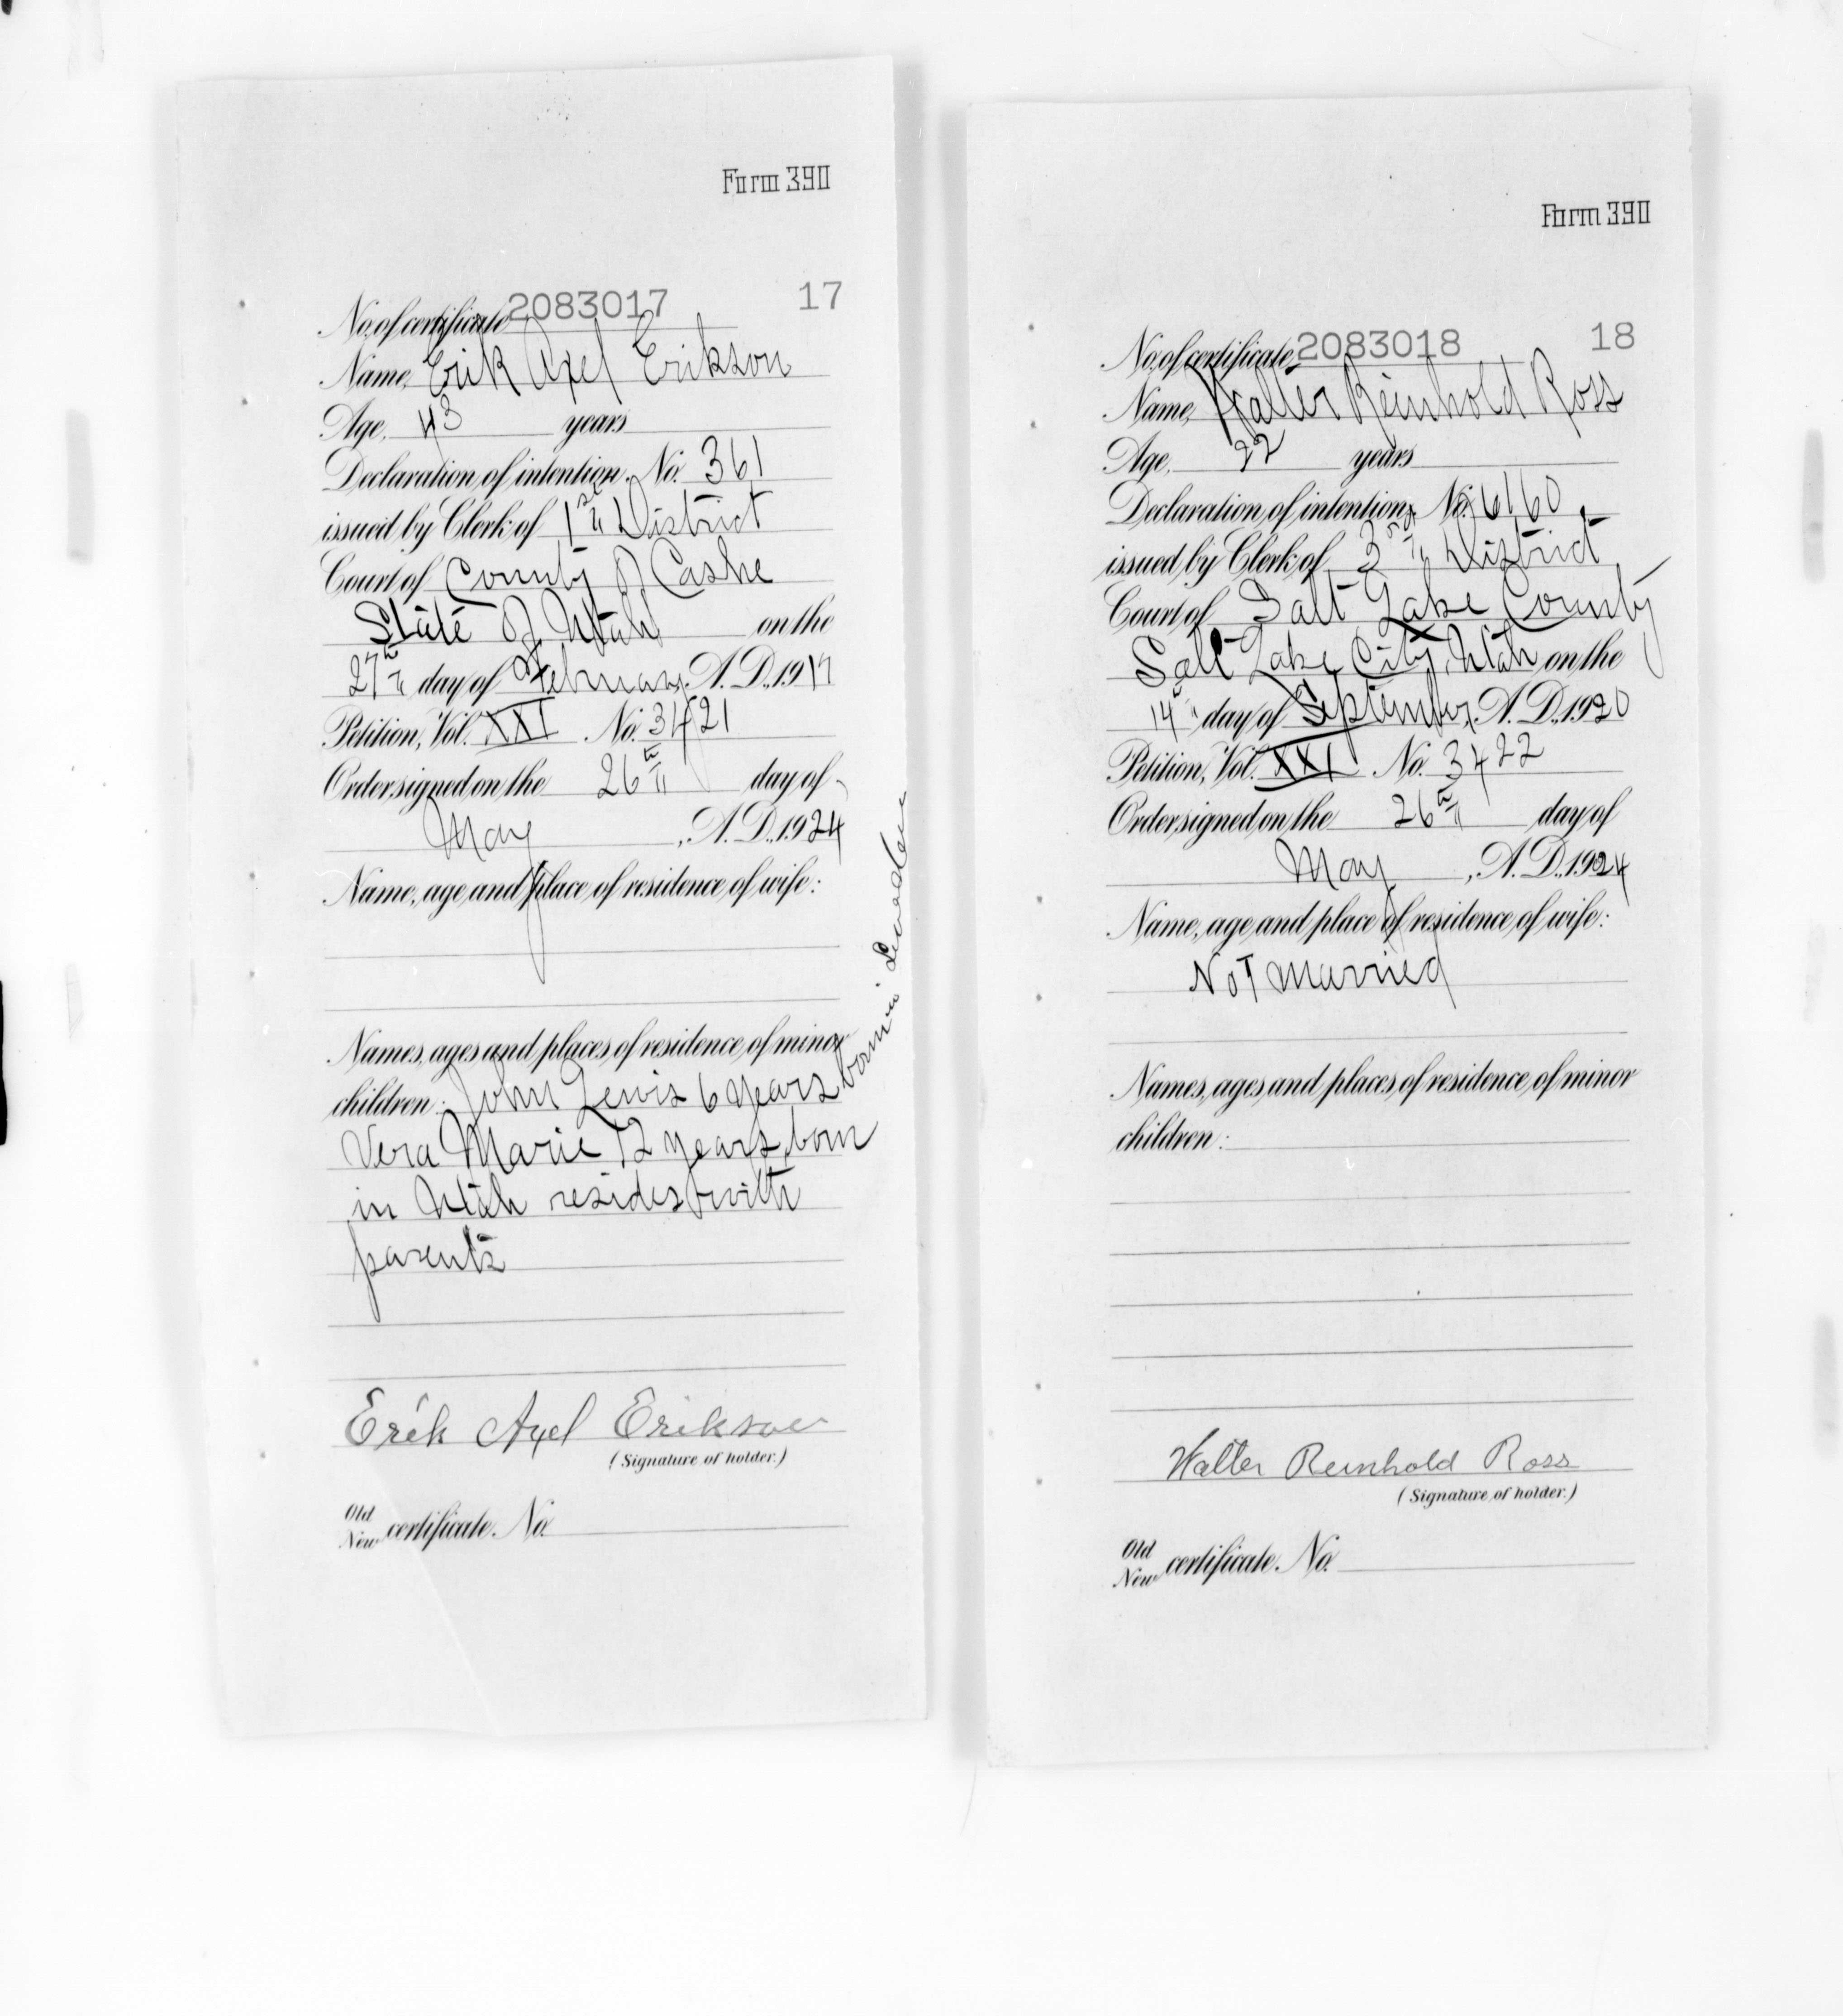 Form 390
No. of certificate 2083017 17
Name, Erik Axel Erikson
Age, 43 years
Declaration of intention, No. 361
issued by Clerk of 1st District
Court of County of Cashe
State of Utah on the
27th day of February, A. D., 1917
Petition, Vol. XXI No. 3421
Order signed on the 26th day of
May, A. D., 1924
Name, age and place of residence of wife:
Names, ages and places of residence of minor
children: John Lewis 6 years born in
Vera Marie 12 years, born
in Utah resides with
parents
Erik Axel Erikson
(Signature of holder.)
Old
New certificate. No.
Form 390
No. of certificate, 2083018 18
Name, Walter Reinhold Ross
Age, 22 years
Declaration of intention, No. 6160
issued by Clerk of 3rd District
Court of Salt Lake County
Salt Lake City, Utah on the
14th day of September, A. D., 1920
Petition, Vol. XXI No. 3422
Order signed on the 26th day of
May, A. D., 1924
Name, age and place of residence of wife:
Not Married
Names, ages and places of residence of minor
children:
Walter Reinhold Ross
(Signature of holder.)
Old
New certificate. No.